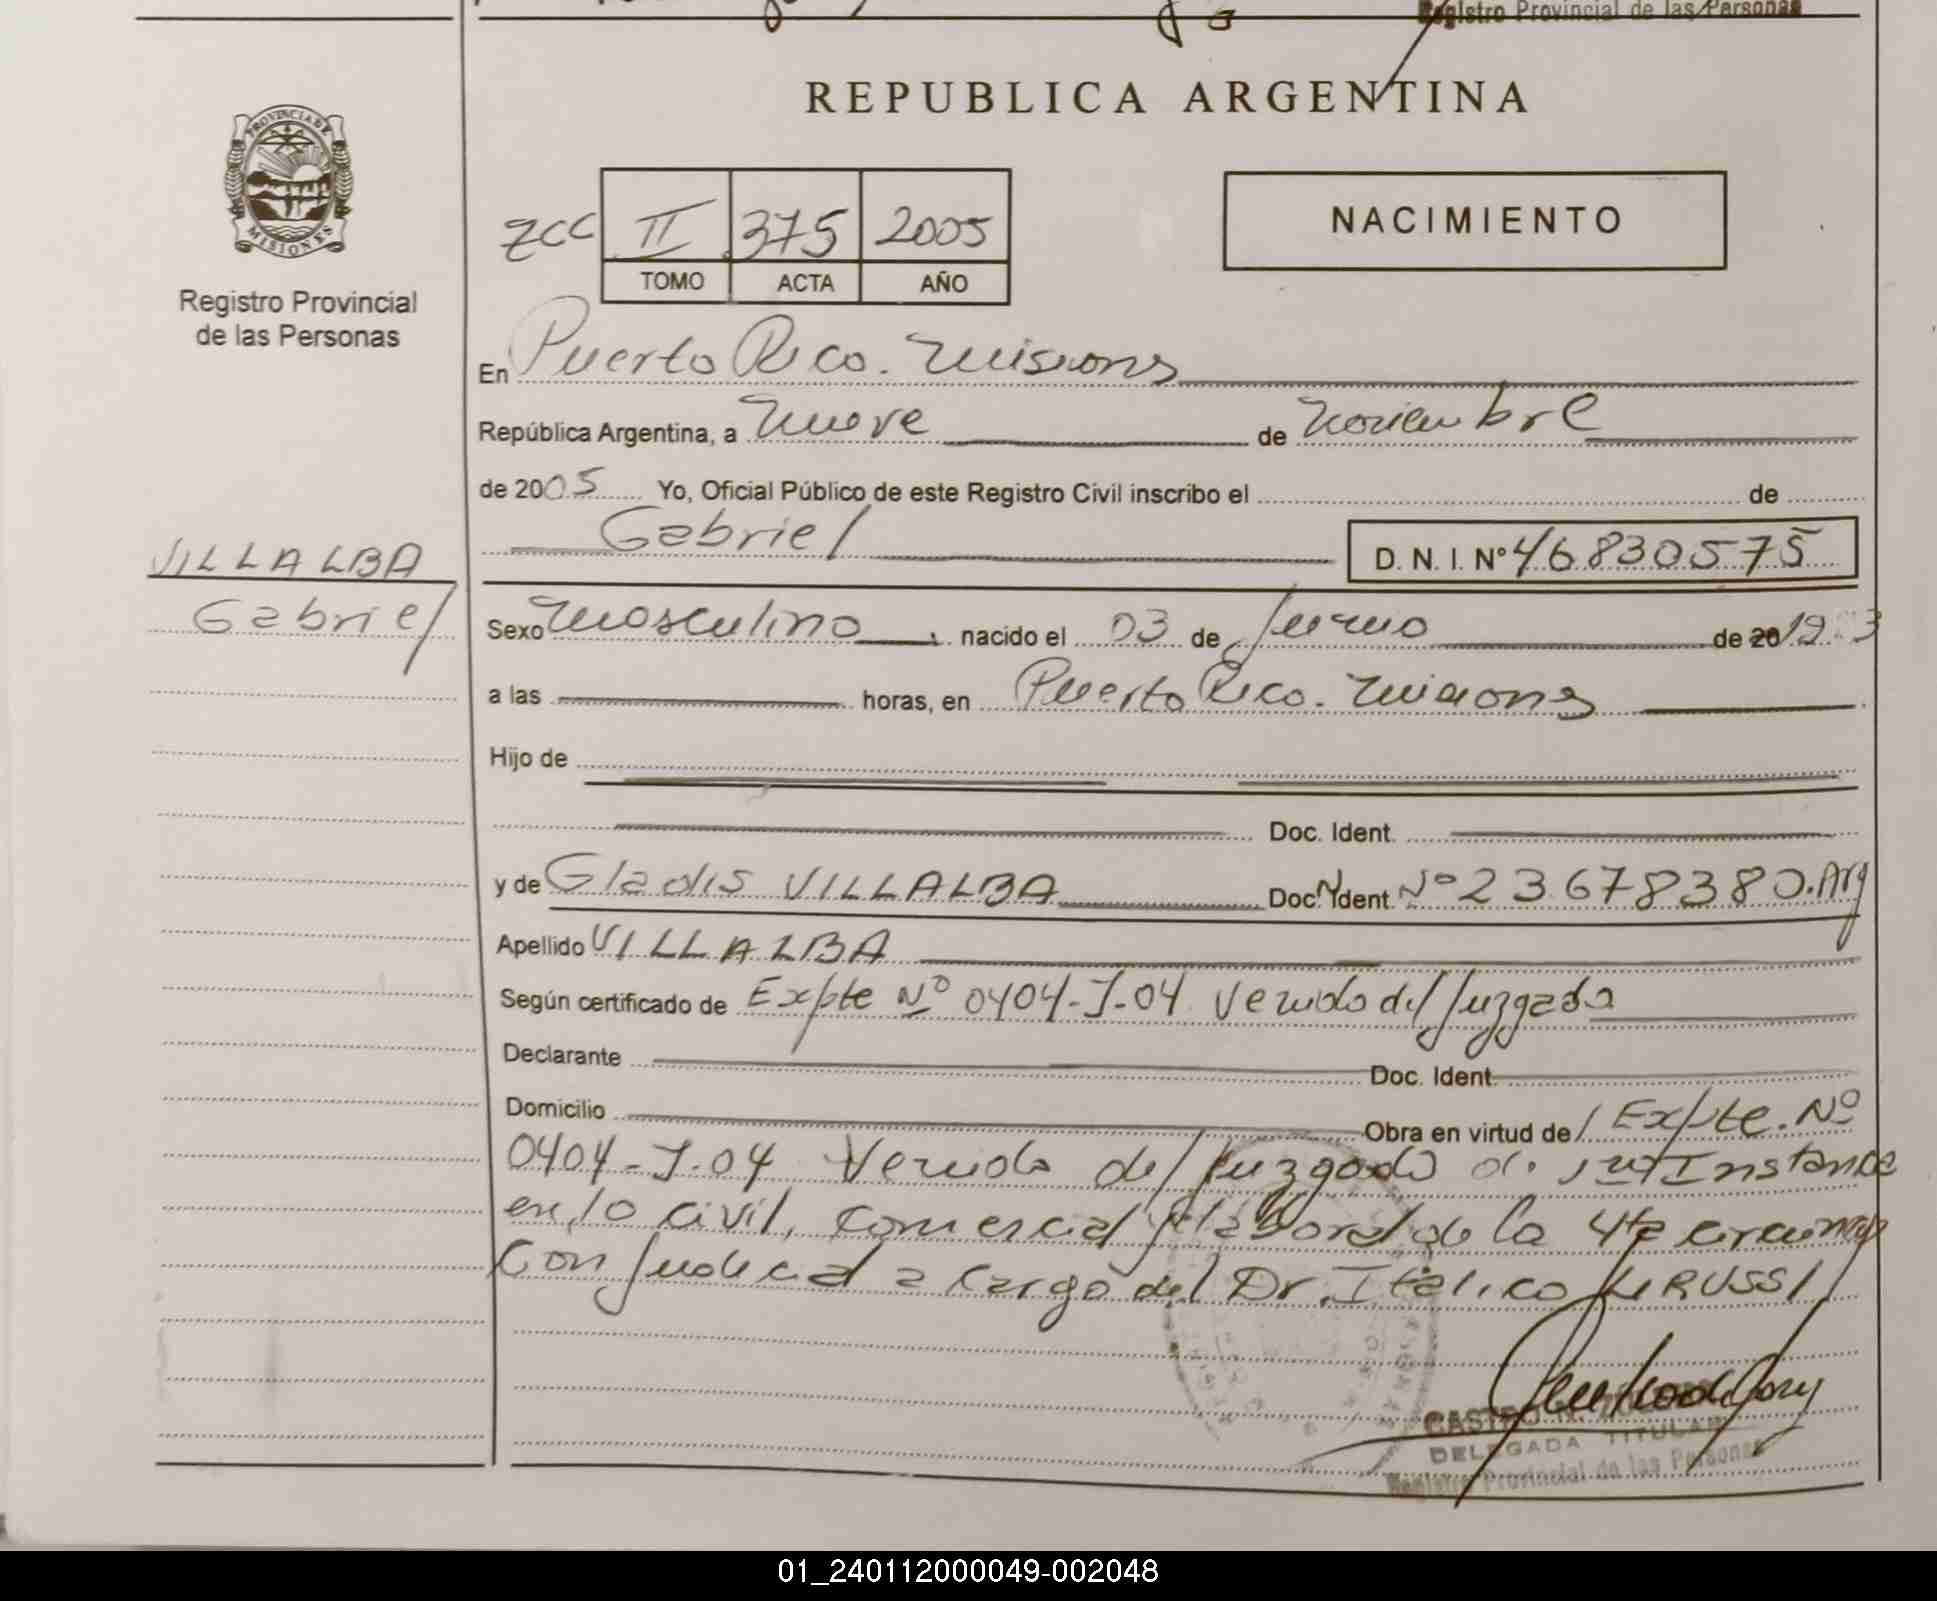 Registro Provincial de las Personas
REPUBLICA ARGENTINA
PROVINCIA DE
MISIONES
Registro Provincial
de las Personas
ZCC II 375 2005
TOMO ACTA AÑO
NACIMIENTO
En Puerto Rico. Misiones
República Argentina, a Nueve de Noviembre
de 2005 Yo, Oficial Público de este Registro Civil inscribo el de
Gabriel D. N. I. Nº 46830575
VILLALBA
Gabriel
Sexo Masculino nacido el 03 de Junio de 20
a las horas, en Puerto Rico. Misiones
Hijo de
Doc. Ident.
y de Gladis VILLALBA Doc. Ident. Nº 23678380. Arg
Apellido VILLALBA
Según certificado de Expte Nº 0404-J-04 Venido del Juzgado
Declarante Doc. Ident.
Domicilio Obra en virtud de Expte. Nº
0404-J-04 Venido del Juzgado de Instancia
en lo civil, Comercial y laboral de la 4ta circuns
Con Judicial a Cargo del Dr. Italico
DELEGADA TITULAR
Registro Provincial de las Personas
01_240112000049-002048